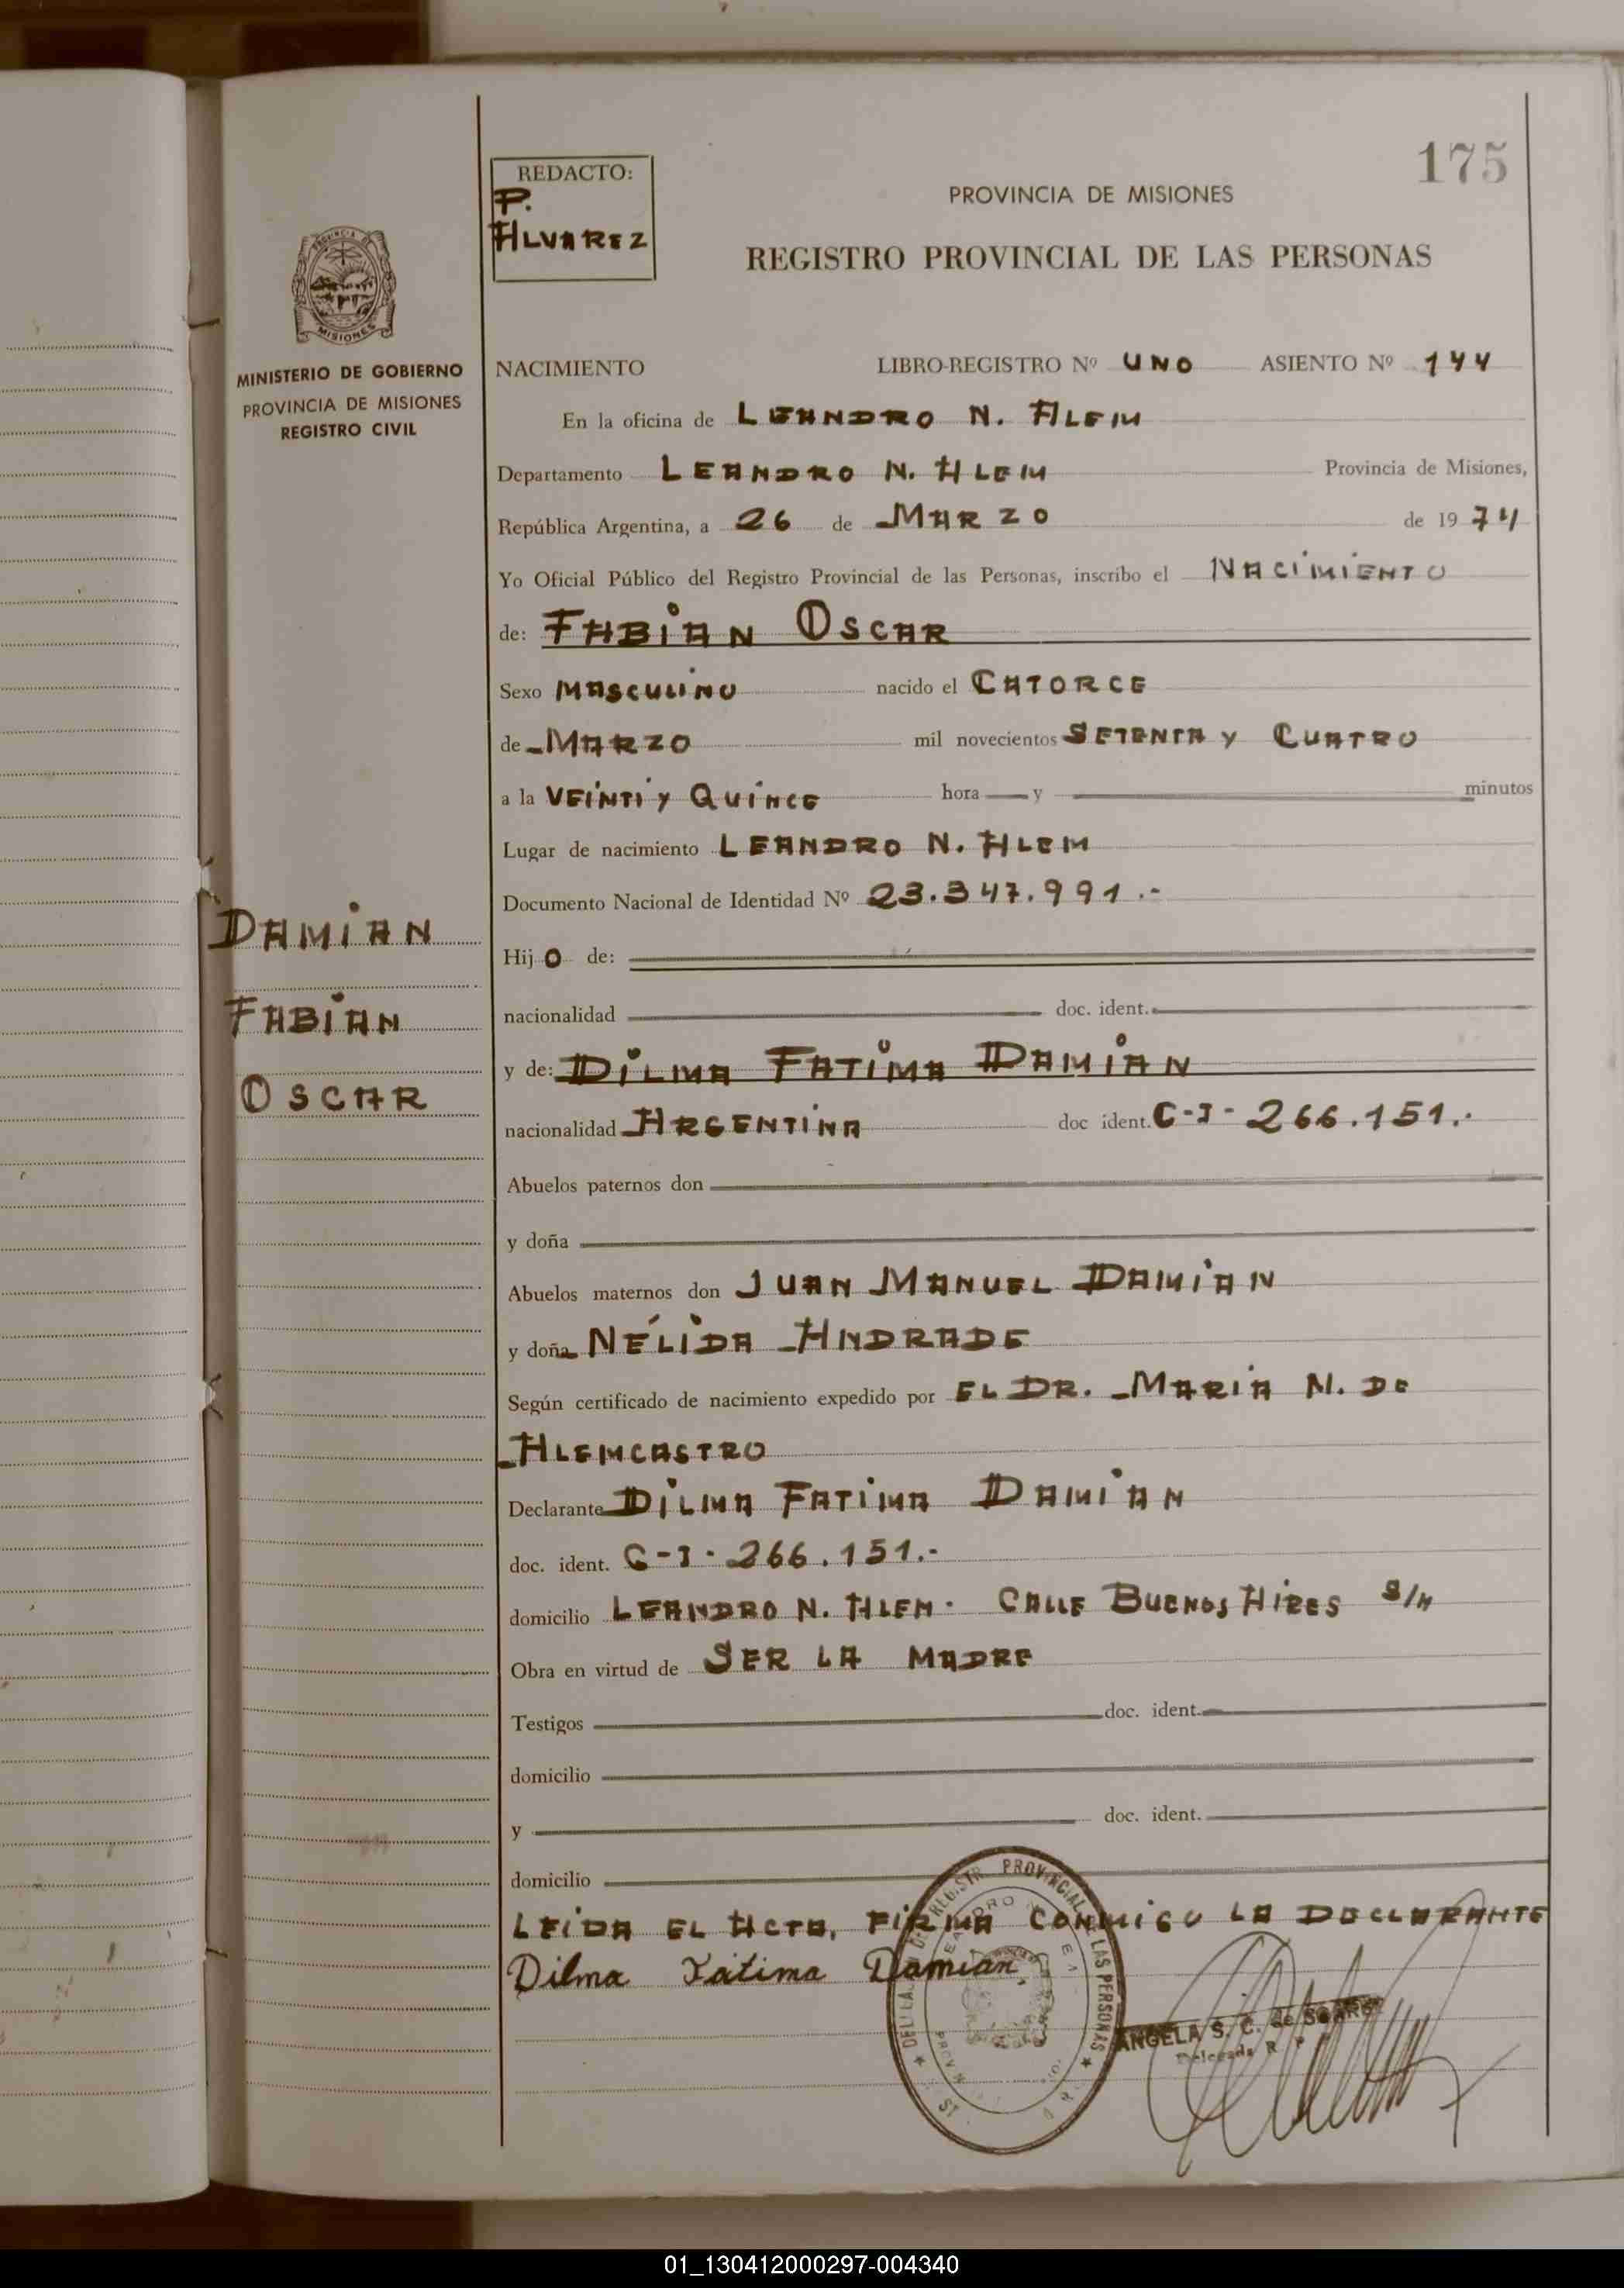 175
REDACTO:
P.
ALVAREZ
PROVINCIA DE MISIONES
REGISTRO PROVINCIAL DE LAS PERSONAS
MISIONES
MINISTERIO DE GOBIERNO
PROVINCIA DE MISIONES
REGISTRO CIVIL
NACIMIENTO LIBRO-REGISTRO Nº UNO ASIENTO Nº 144
En la oficina de LEANDRO N. ALEM
Departamento LEANDRO N. ALEM Provincia de Misiones,
República Argentina, a 26 de MARZO de 1974
Yo Oficial Público del Registro Provincial de las Personas, inscribo el NACIMIENTO
de: FABIAN OSCAR
Sexo MASCULINO nacido el CATORCE
de MARZO mil novecientos SETENTA Y CUATRO
a la VEINTI Y QUINCE hora y minutos
Lugar de nacimiento LEANDRO N. ALEM
Documento Nacional de Identidad Nº 23.347.991.-
DAMIAN
FABIAN
OSCAR
Hijo de:
nacionalidad doc. ident.
y de: DILMA FATIMA DAMIAN
nacionalidad ARGENTINA doc ident. C-I- 266.151.-
Abuelos paternos don
y doña
Abuelos maternos don JUAN MANUEL DAMIAN
y doña NÉLIDA ANDRADE
Según certificado de nacimiento expedido por EL DR. MARIA N. DE
ALEMCASTRO
Declarante DILMA FATIMA DAMIAN
doc. ident. C-I- 266.151.-
domicilio LEANDRO N. ALEM. CALLE BUENOS AIRES S/N
Obra en virtud de SER LA MADRE
Testigos doc. ident.
domicilio
y doc. ident.
domicilio
LEIDA EL ACTA, FIRMA CONMIGO LA DECLARANTE
Dilma Fátima Damián,
PROVINCIAL LAS PERSONAS
ANGELA S. C. de SOAREZ
Delegada R. P.
01_130412000297-004340